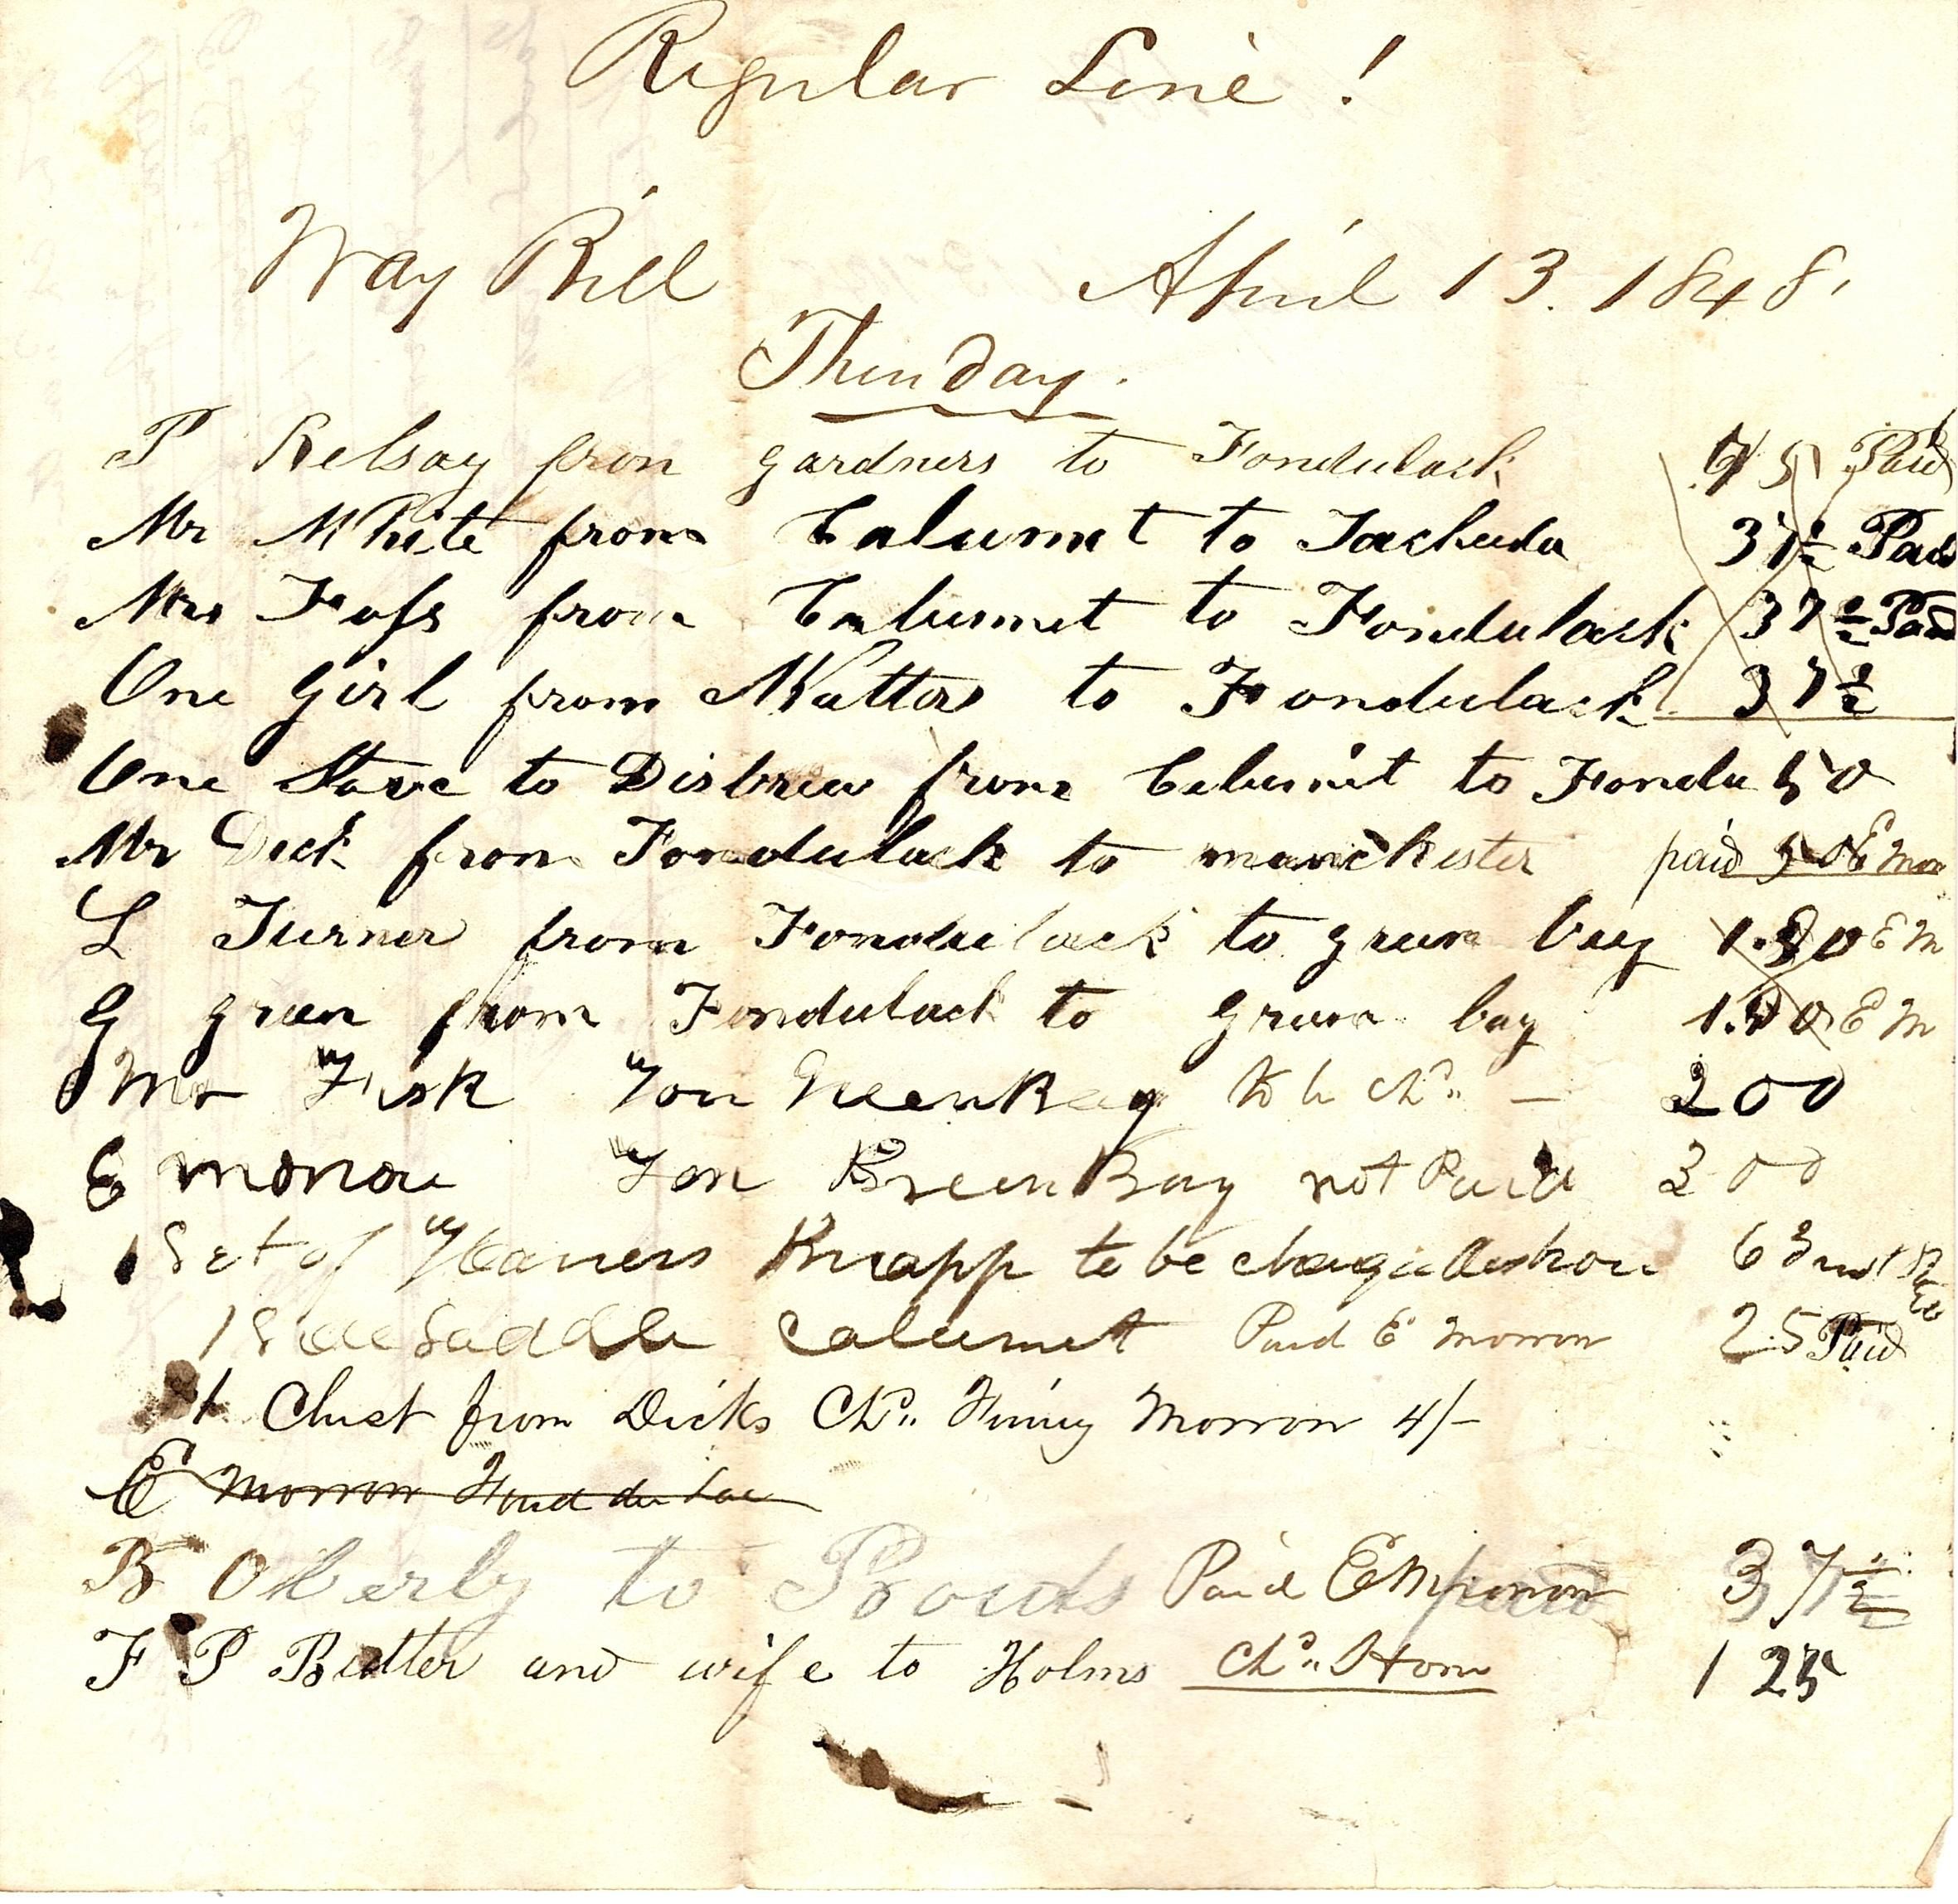 Regular Line !
Way Bill April 13. 1848.
Thursday.
P Kelsay from gardners to Fondulack Paid
Mr White from Calumet to Tachuda 37½ Paid
Mrs Foss from Calumet to Fondulack 37½ Paid
One Girl from to Fondulack 37½
One Stove to Disbrew from Calumit to Fondu 50
Mr Dick from Fondulack to manchester paid 50 E Mor
L Turner from Fondulack to green bay E M
G green from Fondulack to Green bay E M
Mr Fisk GreenBay Chd 200
E morrow Green Bay not Paid 200
1 Set of Knapp to be 63 not Paid
1 Side Saddle Calumet Paid E Morrow 25 Paid
1 Chest from Dicks Chd. Finny Morrow 4/-
E Morrow Fond du Lac
B Oberly to Prouts Paid E Morrow paid 37½
F P Butter and wife to Holms Chd. Horn 1 25